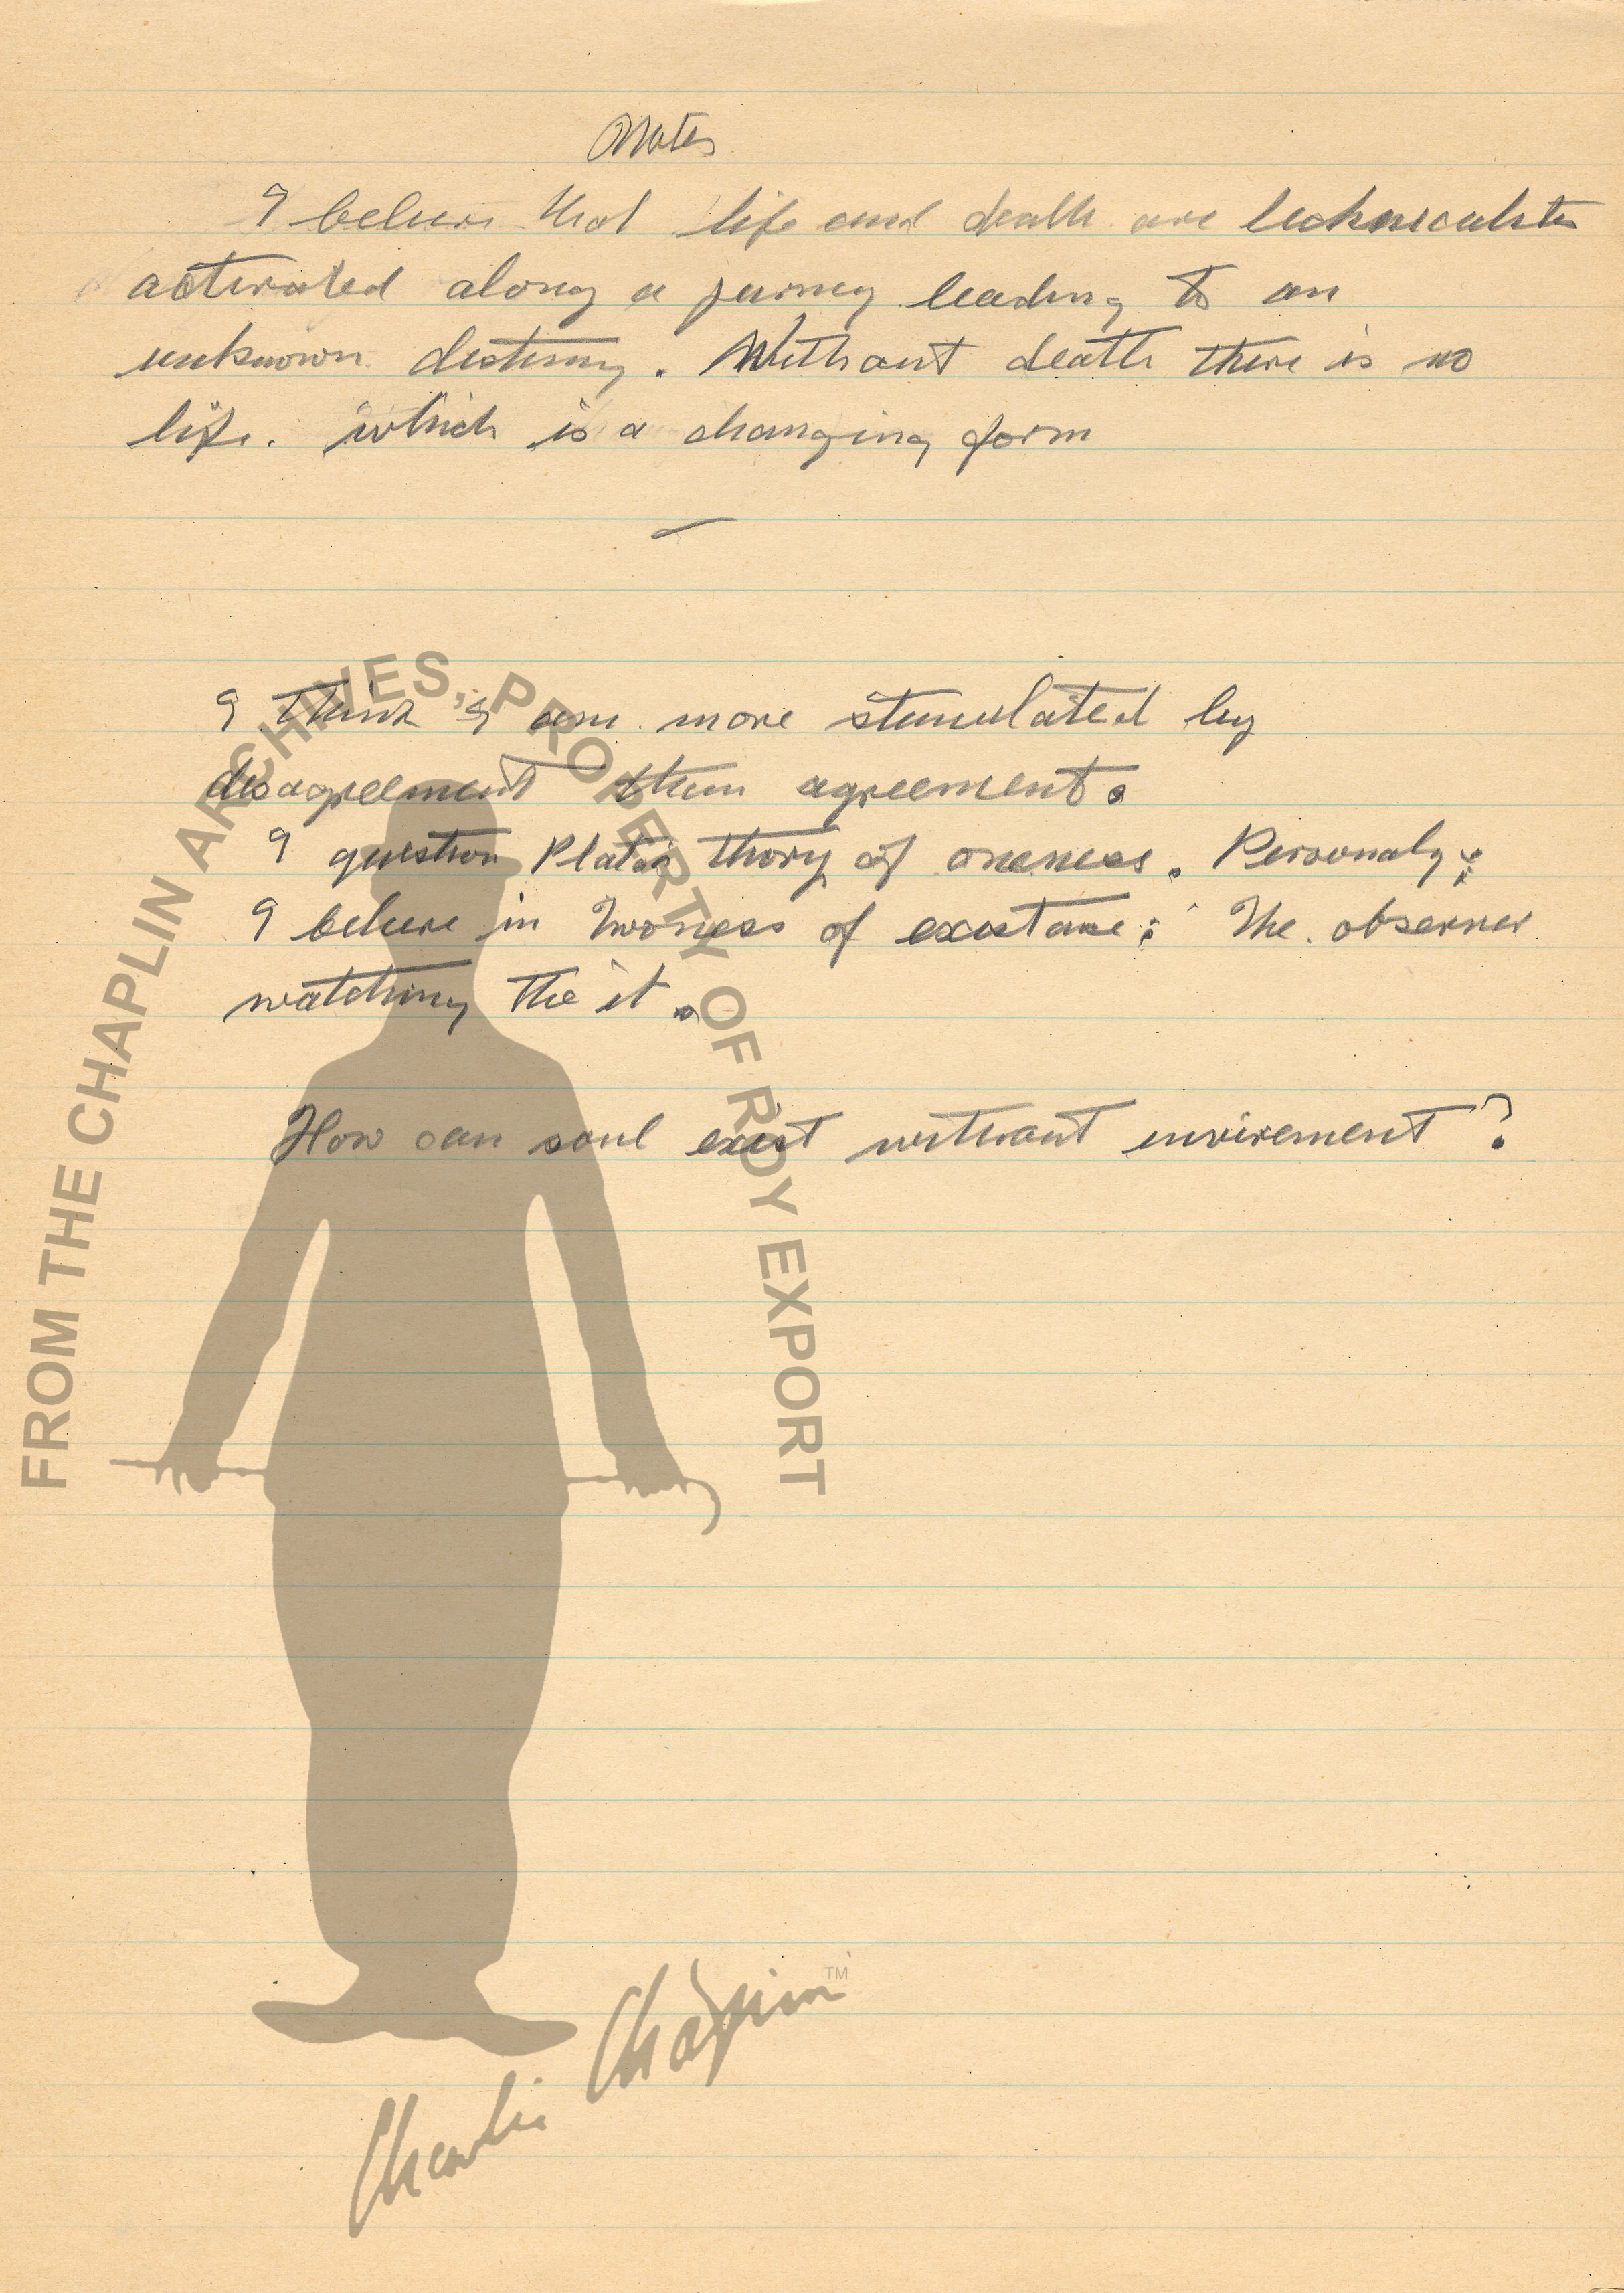 Notes
I beleive that life and death are technicalities
activated along a jurney leading to an
unknown destiny. Without death there is no
life. which is a changing form
I think I am more stimulated by
disagreement than agreement.
I question Plato's thory of oneness. Personaly;
I beleive in Twoness of existance: The observer
watching the it.
How can soul exist without envirement?
FROM THE CHAPLIN ARCHIVES, PROPERTY OF ROY EXPORT
Charlie Chaplin™